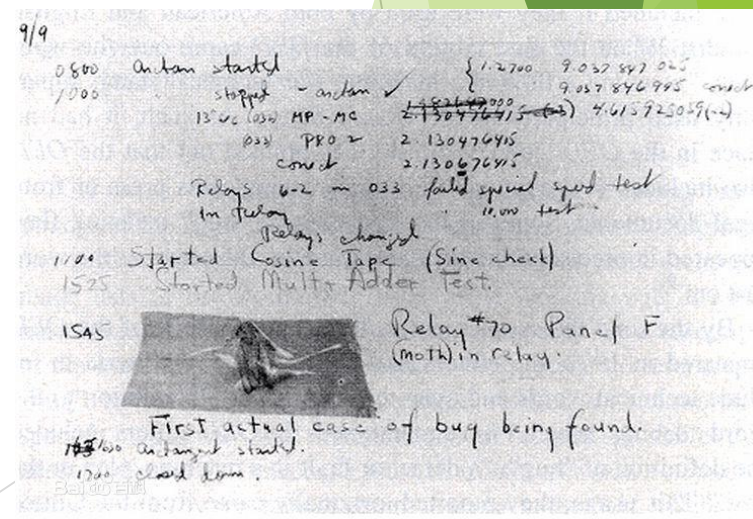 9/9
0800 arctan started { 1.2700 9.037 847 025
1000 stopped - arctan ✓ 9.037 846 995 correct
13"uc (032) MP - MC 2.130476415 (-3) 4.615925059(-2)
(033) PRO 2 2.130476415
correct 2.130676415
Relays 6-2 in 033 failed special speed test
In relay 10,000 test.
Relays changed
1100 Started Cosine Tape (Sine check)
1525 Started Mult+ Adder Test.
1545 Relay #70 Panel F
(moth) in relay.
First actual case of bug being found.
1630 arctangent started.
1700 closed down.